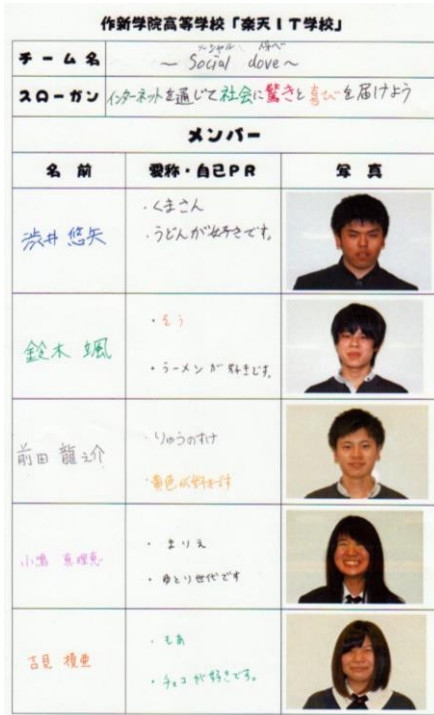 作新学院高等学校「楽天IT学校」
チーム名
ソーシャル
～ Social dove ～
スローガン
インターネットを通じて社会に驚きと喜びを届けよう
メンバー
名前 愛称・自己PR 写真
渋井 悠矢
・くまさん
・うどんが好きです。
鈴木 颯
・そう
・ラーメンが好きです。
前田 龍之介
・りゅうのすけ
・黄色が好きです
小嶋 真理恵
・まりえ
・ゆとり世代です
古見 模亜
・もあ
・チョコが好きです。